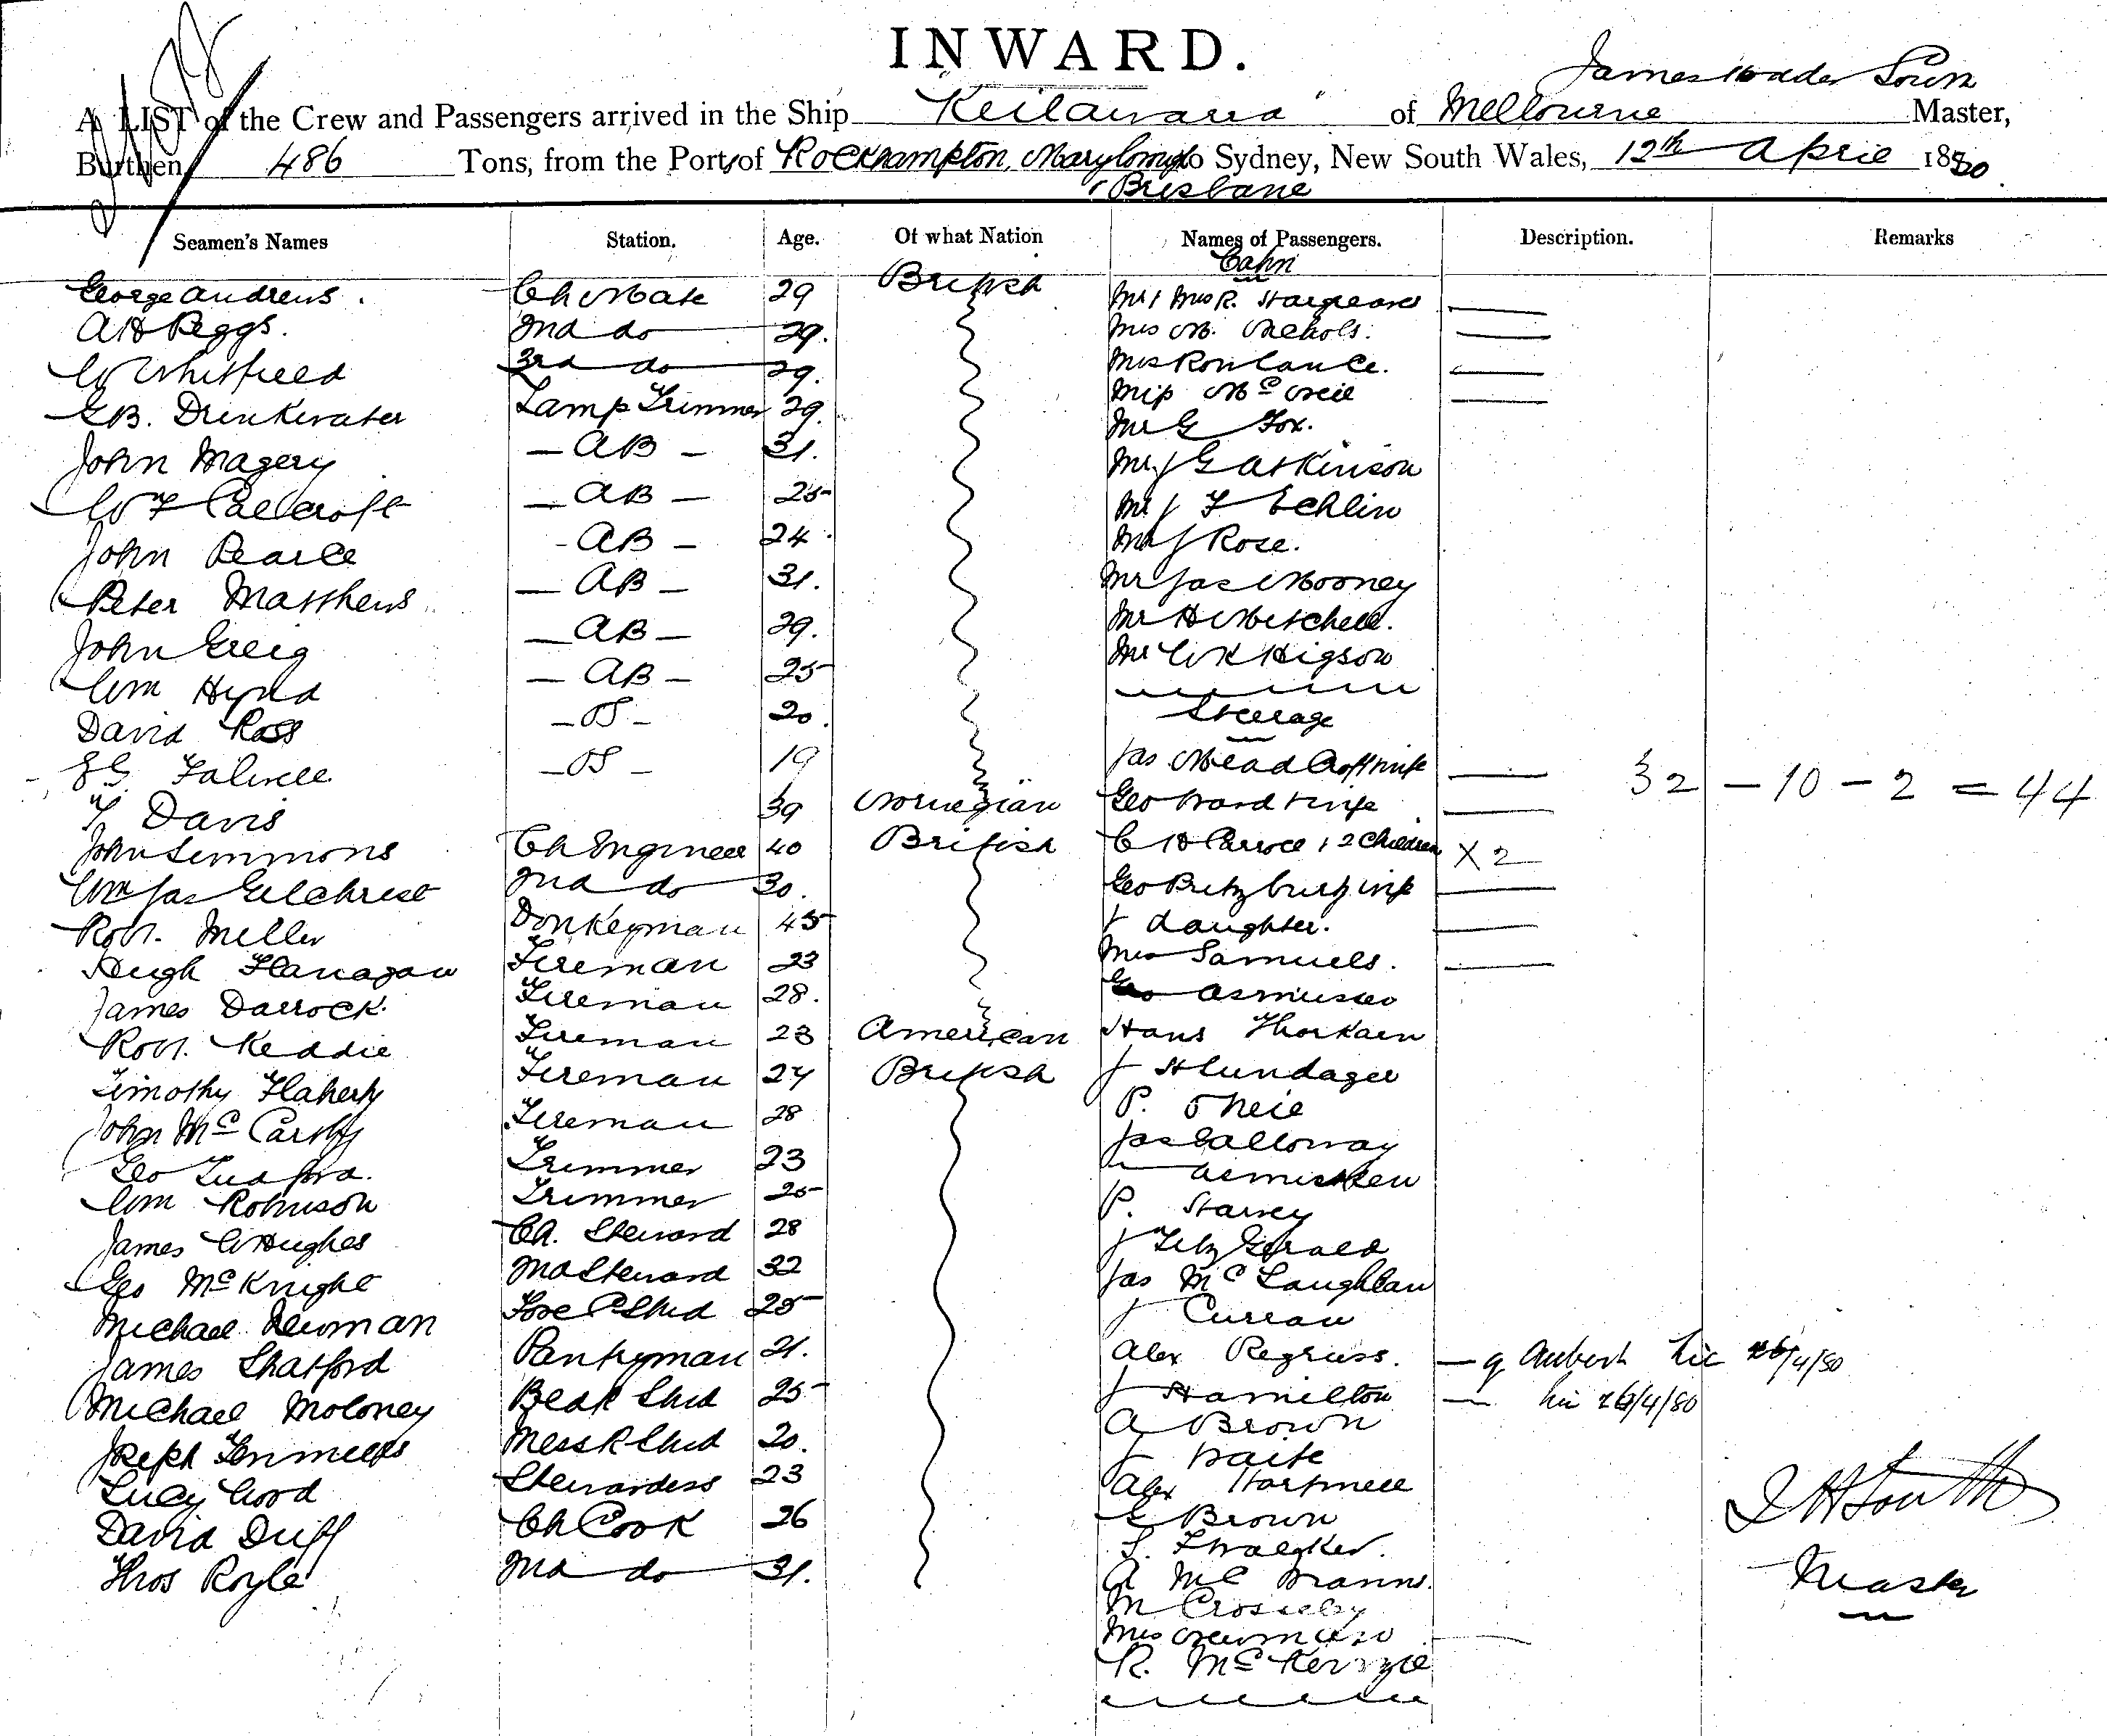 INWARD.
James Hader South
A LIST of the Crew and Passengers arrived in the Ship "Keilawarra" of Melbourne Master,
Burthen 486 Tons, from the Port, of Rockhampton, Maryboro' to Sydney, New South Wales, 12th April 1880
& Brisbane
Seamen's Names Station. Age. Of what Nation Names of Passengers. Description. Remarks
Cabin
George Andrews. Ch Mate 29 British Mr & Mrs R. Hargreaves
A H Peggs. 2nd do 29. Mrs M. Nichols.
W Whitfield 3rd do 29. Mrs Rowlance.
G B. Drinkwater Lamp Trimmer 29. Miss McNeil
John Magery AB 31. Mr G Fox.
W F Calcroft AB 25 Mr J G Atkinson
John Pearce AB 24 Mr J F Echlin
Peter Matthews AB 31. Mr J Rose.
John Greig AB 29. Mr Jas Mooney
Wm Hynd AB 25 Mr H Mitchell.
David Ross OS 20. Mr W K Higson
Steerage
OS 19 Jas Meadcroft wife
32 - 10 - 2 = 44
Davis 39 Norwegian Geo Ward & wife
John Simmons Ch Engineer 40 British C H Carroll & 2 Children X 2
Wm Jas Gilchrist 2nd do 30. Geo wife
Robt. Miller Donkeyman 45 & daughter.
Hugh Flanagan Fireman 23 Mrs Samuels.
James Darrock. Fireman 28. Asmussen
Robt. Keddie Fireman 23 American Hans Thorkaen
Timothy Flaherty Fireman 24 British J H Lundager
John McCarthy Fireman 28 P. O'Neil
Geo Ludford. Trimmer 23 Jas Galloway
Wm Robinson Trimmer 25
James W Hughes Ch. Steward 28 P. Harvey
Geo McKnight 2nd Steward 32 J FitzGerald
Michael Newman Fore C Stwd 25 Jas McLaughlan
James Shatford Pantryman 21. J Curran
Michael Moloney Bedr Stwd 25 Alex Regruss. 26/4/80
Joseph Messr Stwd 20. J Hamilton 26/4/80
Lucy Wood Stewardess 23 A Brown
David Duff Ch Cook 26 J Waite
Thos Royle 2nd do 31. Alex Hartmell
E Brown
S.
A Mc
M Crossley
Mrs Newman
R. McKenzie
J H South
Master